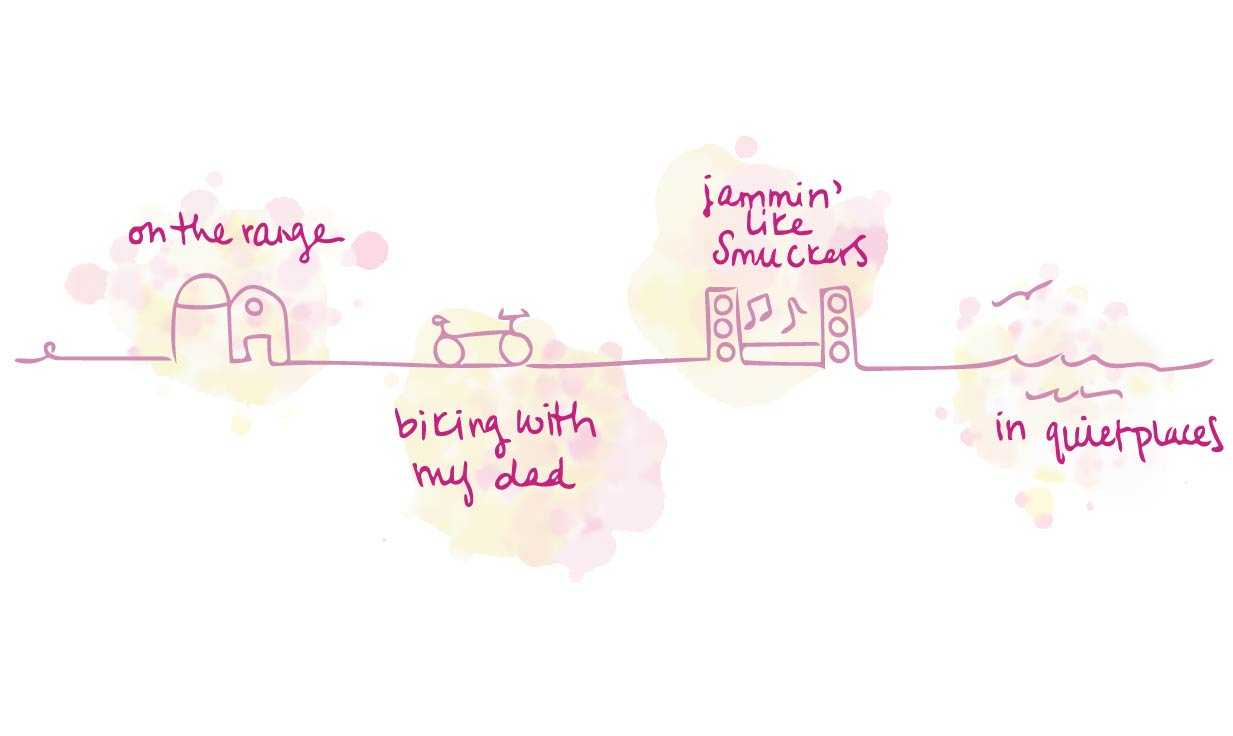 on the range
biking with
my dad
jammin'
like
Smuckers
in quiet places